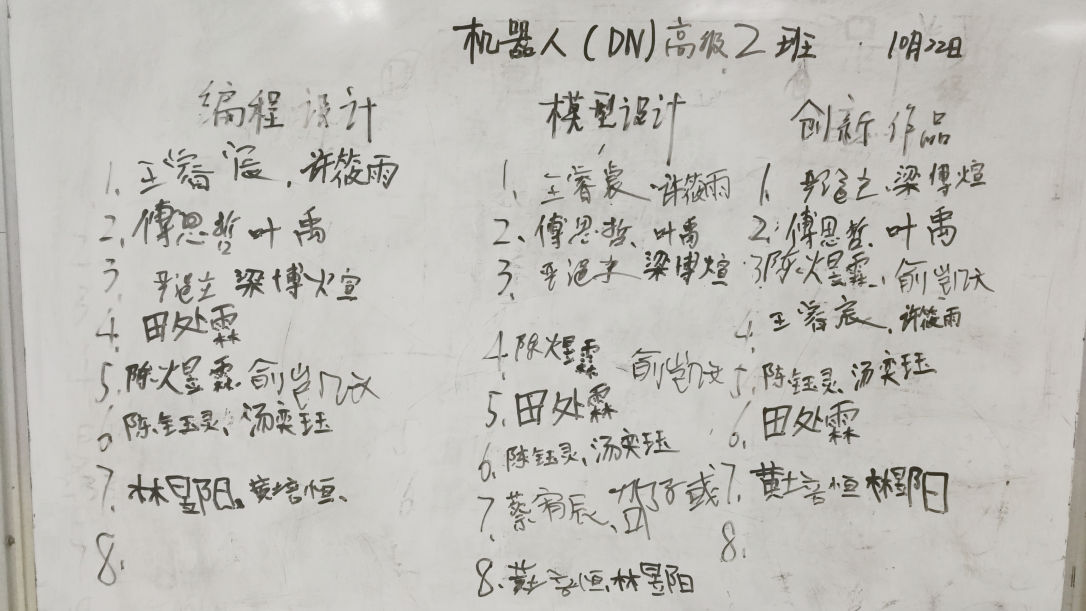 机器人(DN)高级2班 10月22日
编程设计
1. 王睿宸，许筱雨
2、傅思哲 叶禹
3 梁博煊
4、田处霖
5、陈煜霖 俞凯文
6. 陈钰灵、汤奕珏
7. 林昱阳、黄培恒、
8.
模型设计
1、王睿宸 许筱雨
2、傅思哲、叶禹
3、梁博煊
4. 陈煜霖 俞凯文
5、田处霖
6. 陈钰灵、汤奕珏
7. 蔡宥辰、
8、黄培恒,林昱阳
创新作品
1. 梁博煊
2. 傅思哲、叶禹
3. 陈煜霖、俞凯文
4. 王睿宸、许筱雨
5. 陈钰灵、汤奕珏
6. 田处霖
7. 黄培恒 林昱阳
8.